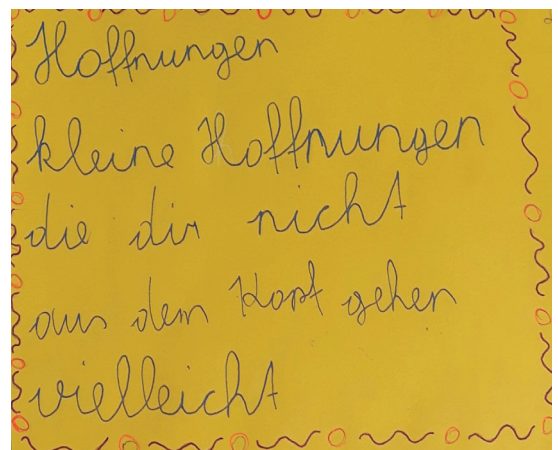 Hoffnungen
kleine Hoffnungen
die dir nicht
aus dem Kopf gehen
vielleicht